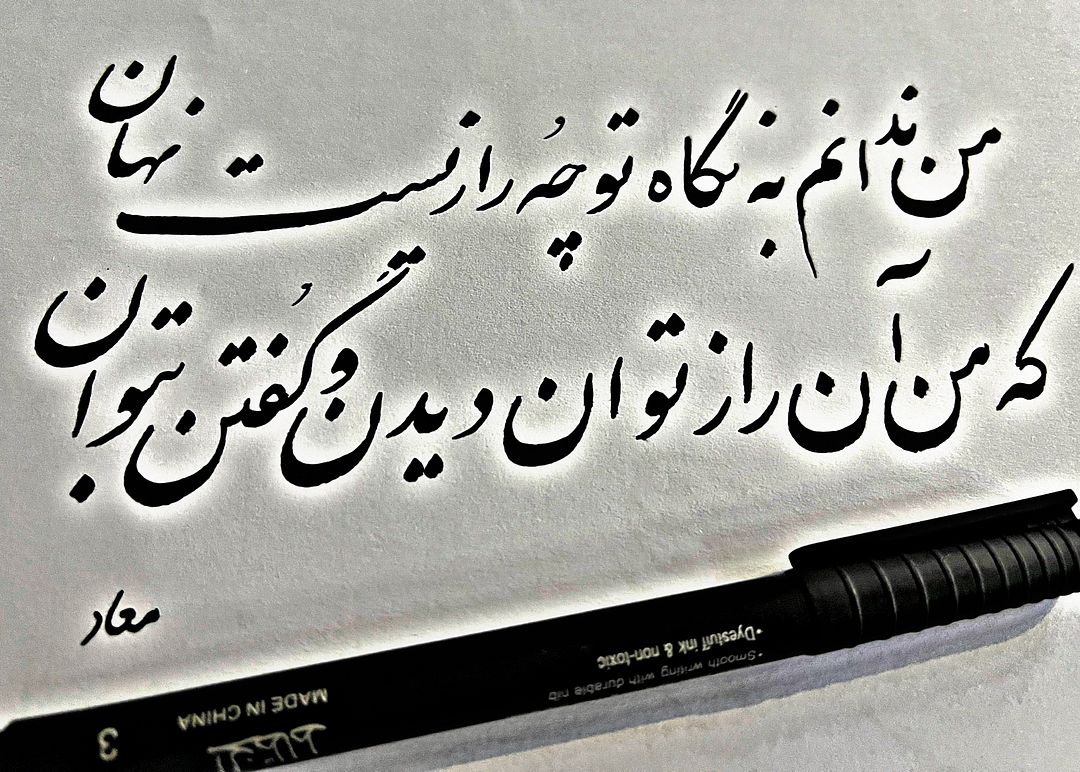 من ندانم به نگاه تو چه رازیست نهان
که من آن راز توان دیدن و گُفتن بتوان
معاد
•Dyestuff ink & non-toxic
•Smooth writing with durable nib
MADE IN CHINA
3